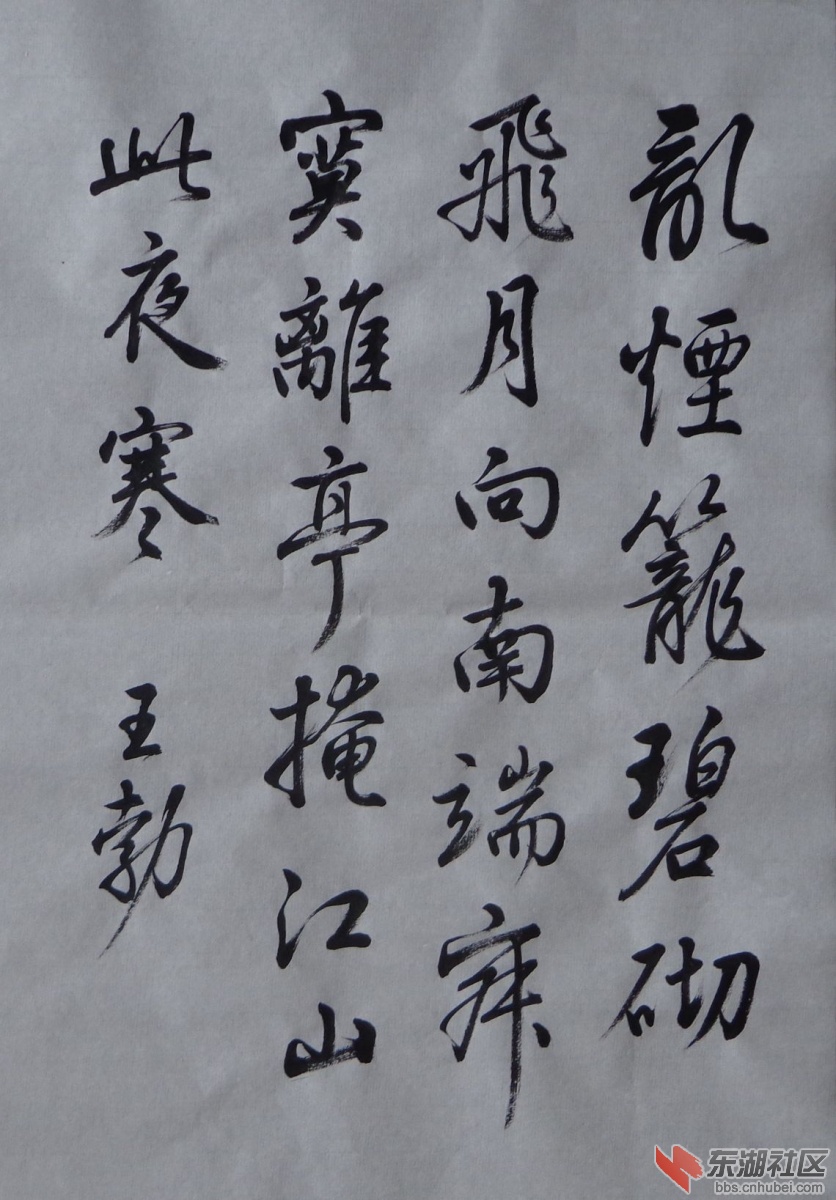 亂煙籠碧砌
飛月向南端寂
寞離亭掩江山
此夜寒 王勃
东湖社区
bbs.cnhubei.com